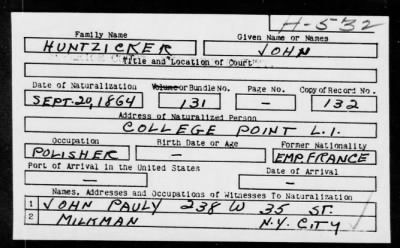 H-532
Family Name Given Name or Names
HUNTZICKER JOHN
Title and Location of Court
Date of Naturalization Volume or Bundle No. Page No. Copy of Record No.
SEPT. 20, 1864 131 — 132
Address of Naturalized Person
COLLEGE POINT L.I.
Occupation Birth Date or Age Former Nationality
POLISHER — EMP. FRANCE
Port of Arrival in the United States Date of Arrival
— —
Names, Addresses and Occupations of Witnesses To Naturalization
1 JOHN PAULY 238 W 35 ST.
2 MILKMAN N.Y. CITY